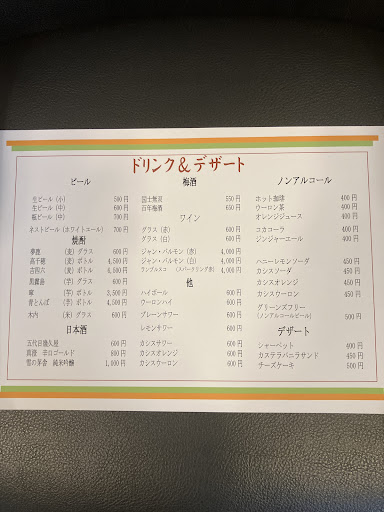 ドリンク&デザート
ビール
生ビール (小) 500円
生ビール (中) 600円
瓶ビール (中) 700円
ネストビール (ホワイトエール) 700円
焼酎
(麦) グラス 600円
高千穂 (麦) ボトル 3,500円
吉四六 (麦) ボトル 4,500円
黒霧島 (芋) グラス 600円
(芋) ボトル 3,500円
青とんぼ (芋) ボトル 4,500円
木内 (米) グラス 600円
日本酒
五代目儀久屋 600円
真澄 辛口ゴールド 800円
雪の茅舎 純米吟醸 1,000円
梅酒
国士無双 550円
百年梅酒 650円
ワイン
グラス (赤) 600円
グラス (白) 600円
ジャン・バルモン (赤) 4,000円
ジャン・バルモン (白) 4,000円
ランブルスコ (スパークリング赤) 4,000円
他
ハイボール 600円
ウーロンハイ 600円
プレーンサワー 600円
レモンサワー 600円
カシスサワー 600円
カシスオレンジ 600円
カシスウーロン 600円
ノンアルコール
ホット珈琲 400円
ウーロン茶 400円
オレンジジュース 400円
コカコーラ 400円
ジンジャーエール 400円
ハニーレモンソーダ 450円
カシスソーダ 450円
カシスオレンジ 450円
カシスウーロン 450円
グリーンズフリー
(ノンアルコールビール) 500円
デザート
シャーベット 400円
カステラバニラサンド 450円
チーズケーキ 500円